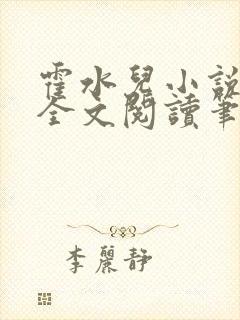 霍水兒小說
全文閱讀筆
李麗靜